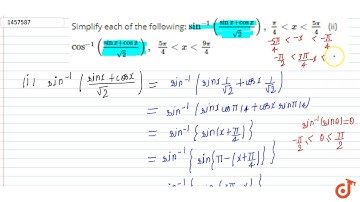 1457587
Simplify each of the following: sin⁻¹ ( (sin x + cos x)/√2 ), π/4 < x < 5π/4 (ii)
cos⁻¹ ( (sin x + cos x)/√2 ), 5π/4 < x < 9π/4
-5π/4 < -x < -π/4
(i) sin⁻¹ ( (sinx + cosx)/√2 ) = sin⁻¹ ( sinx 1/√2 + cosx 1/√2 )
= sin⁻¹ ( sinx cosπ/4 + cosx sinπ/4 )
= sin⁻¹ { sin(x + π/4) }
sin⁻¹(sinθ) = θ
-π/2 ≤ θ ≤ π/2
= sin⁻¹ { sin{ π - (x + π/4) } }
doubtnut